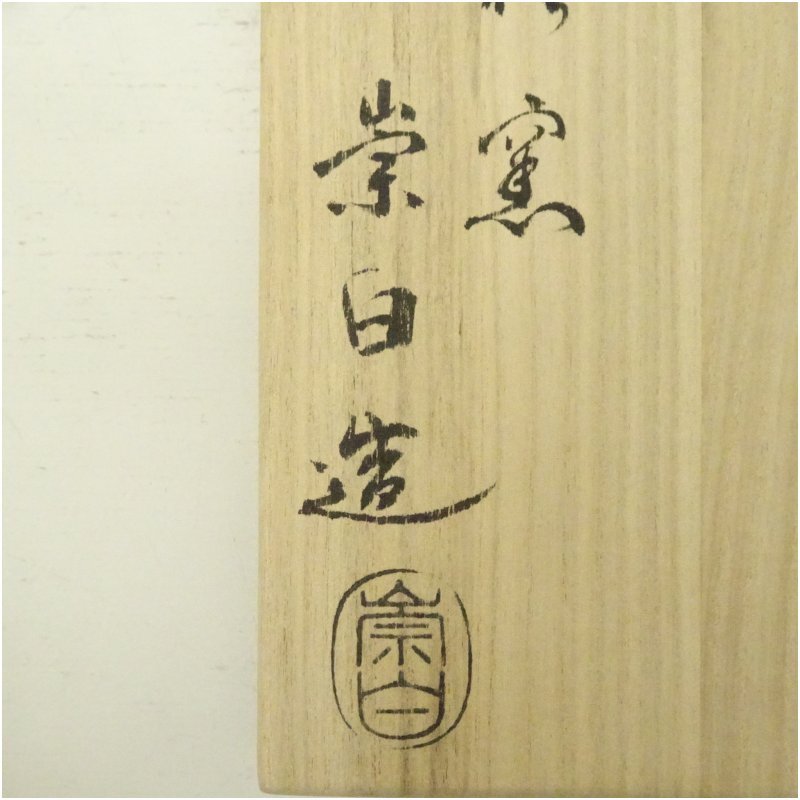 窯
崇白造
崇白